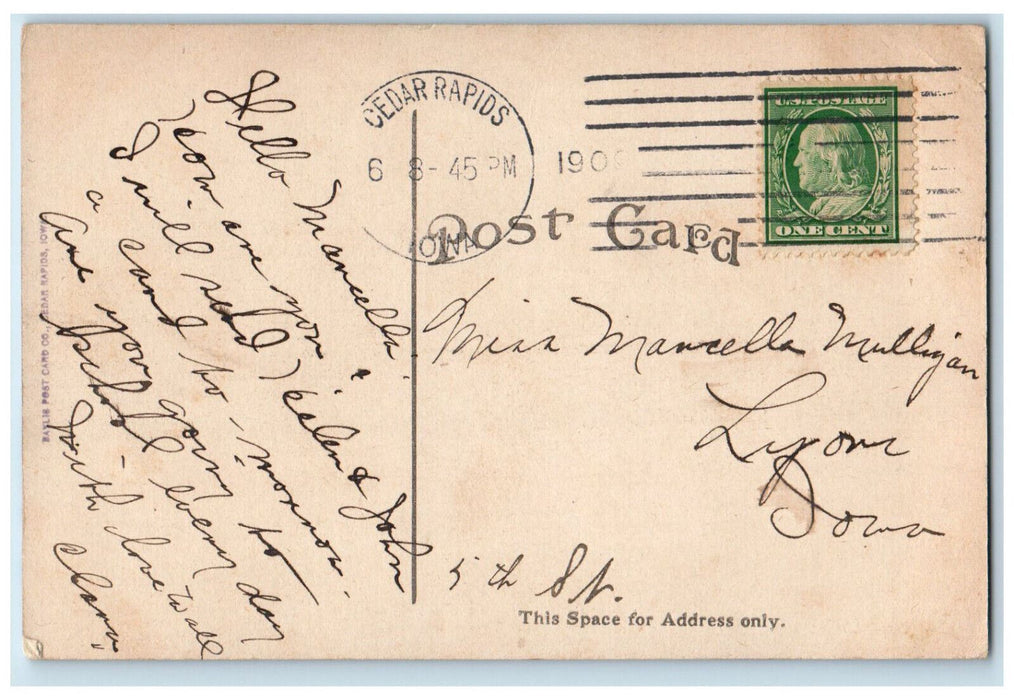 Hello Marcella.
How are you
I will send Helen & John
a card to-morrow.
Are you going to
School every day
With love to all
Clara.
BAYLIS POST CARD CO., CEDAR RAPIDS, IOWA
CEDAR RAPIDS
6 8-45 PM 190
IOWA
U.S. POSTAGE
ONE CENT
Post Card
Miss Marcella Mulligan
Lyons
Iowa
5th St.
This Space for Address only.